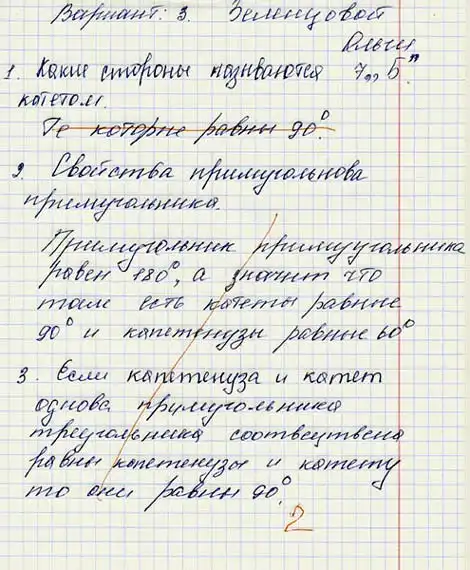 Вариант: 3. Зеленцовой
Ольги
1. Какие стороны называются 7 „Б"
катетом.
Те которые равны 90°.
2. Свойства примугольнова
примугольника.
Примугольник примуугольника
равен 180°, а значит что
там есть катеты равные
90° и капетенузы равные 60°
3. Если капетенуза и катет
однова примугольника
треугольника соотвсутвена
равны капетенузы и катету
то они равны 90°.
2